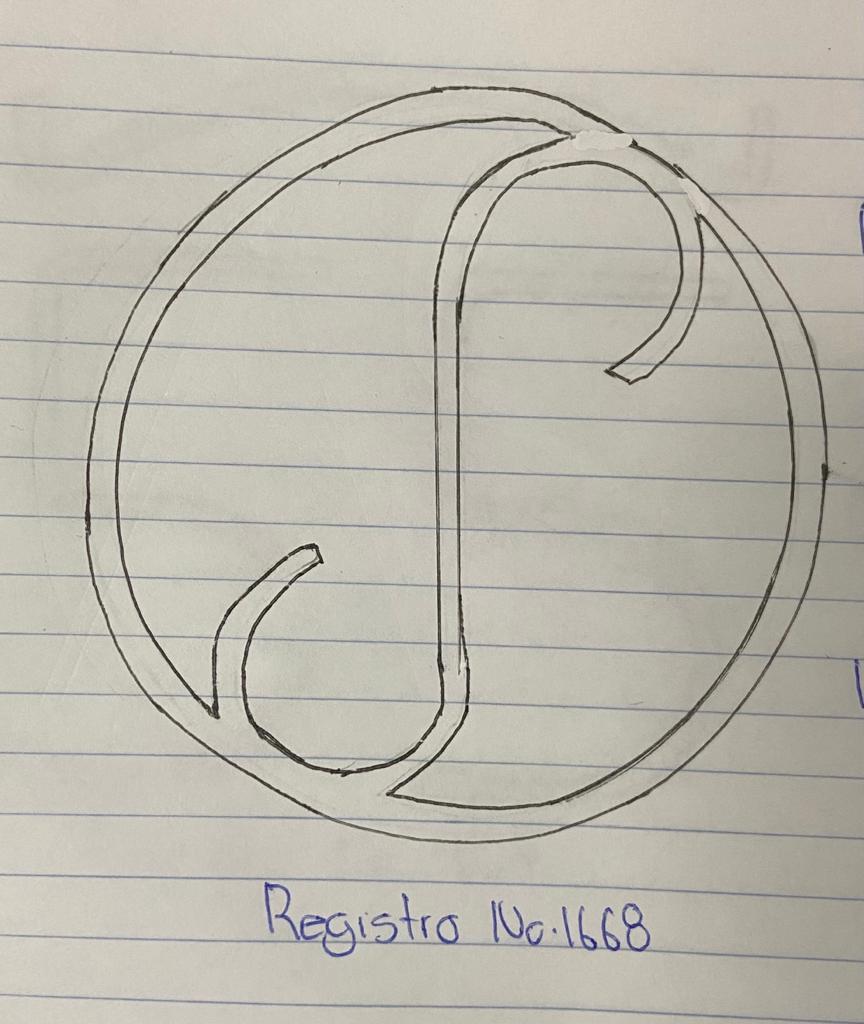 Registro No.1668